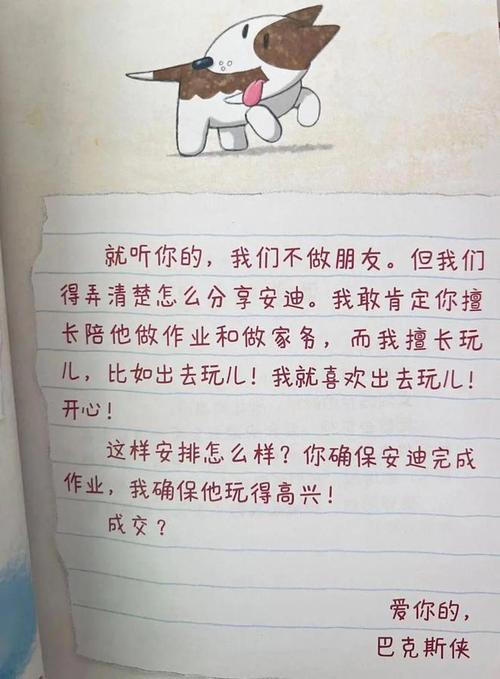 就听你的，我们不做朋友。但我们
得弄清楚怎么分享安迪。我敢肯定你擅
长陪他做作业和做家务，而我擅长玩
儿，比如出去玩儿！我就喜欢出去玩儿！
开心！
这样安排怎么样？你确保安迪完成
作业，我确保他玩得高兴！
成交？
爱你的，
巴克斯侠